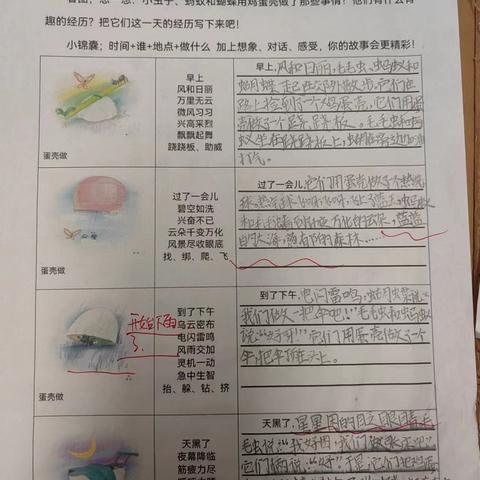 看图，想一想，小虫子、蚂蚁和蝴蝶用鸡蛋壳做了那些事情？他们有什么有
趣的经历？把它们这一天的经历写下来吧！
小锦囊：时间+谁+地点+做什么 加上想象、对话、感受，你的故事会更精彩！
早上
风和日丽
万里无云
微风习习
兴高采烈
飘飘起舞
跷跷板、助威
蛋壳做
早上，风和日丽，毛毛虫、蚂蚁和
蝴蝶走在郊外散步，它们在
路上捡到了一个鸡蛋壳，它们用蛋
壳做了一个跷跷板。毛毛虫和蚂
蚁坐在跷跷板上，蝴蝶在旁边加油
打气。
过了一会儿
碧空如洗
兴奋不已
云朵千变万化
风景尽收眼底
找、绑、爬、飞
蛋壳做
过了一会儿，它们用蛋壳做了个热气
球，
蓝蓝
的大海，
森林……
到了下午
乌云密布
电闪雷鸣
风雨交加
灵机一动
急中生智
抬、躲、钻、挤
蛋壳做
开始下雨
了，
到了下午，电闪雷鸣，蝴蝶说：
“我们做一把伞吧！”毛毛虫和蚂蚁
说：“好呀！”它们用蛋壳做了一个
伞，把伞顶在头上。
天黑了
夜幕降临
筋疲力尽
天黑了，星星
毛虫说：“我好困，我们做
它们俩说：“好”于是，它们把鸡蛋